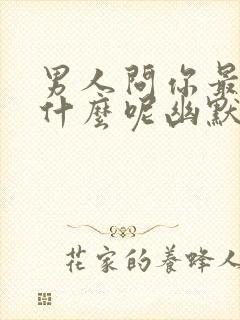 男人問你最
什麼呢幽默
花家的養蜂人